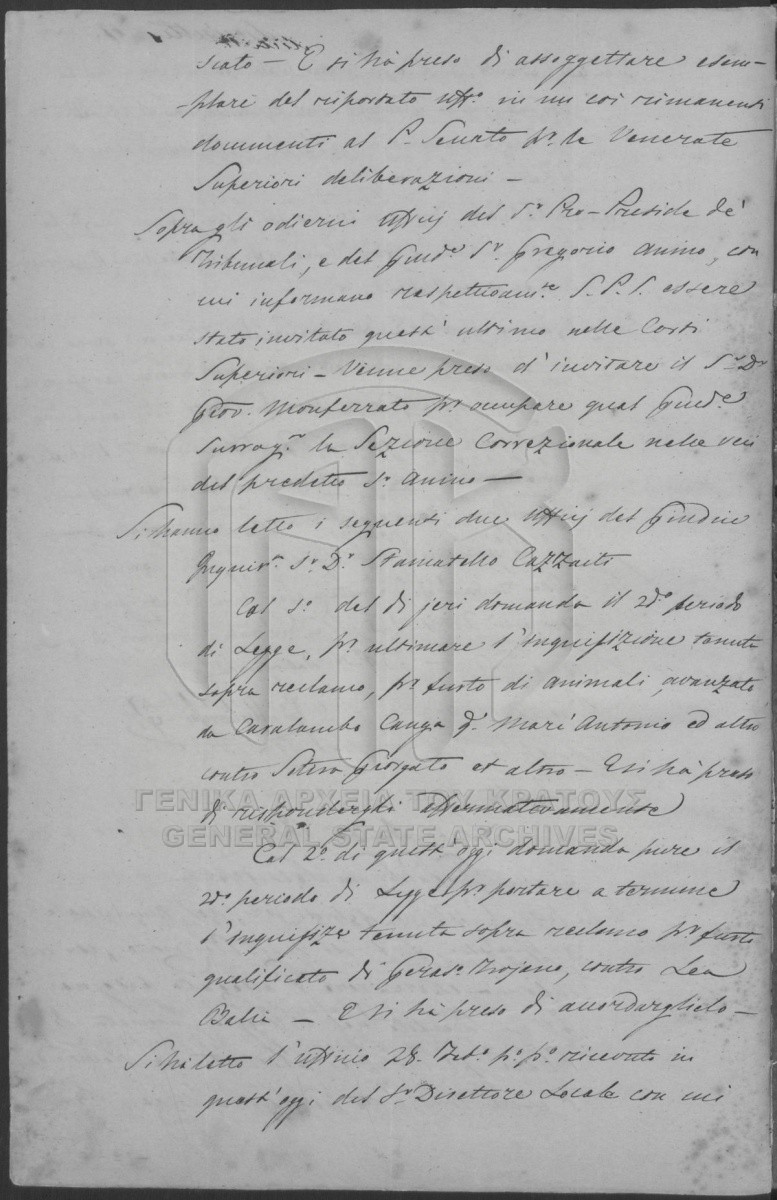 sciato – E si hà preso di assoggettare esem-
-plare del riportato uffo. in un coi rimanenti
documenti al P. Senato pr. le Venerate
Superiori deliberazioni –
Sopra gli odierni Ufficj del Sr. Pro-Preside de'
Tribunali, e del Giude. Sr. Gregorio Anino, con
cui informano rispettivame. S. P. S. essere
stato invitato quest' ultimo nelle Corti
Superiori – Venne preso d' invitare il Sr. Dr.
Giov. Monferrato pr. occupare qual Giude.
Surrogo. la Sezione Correzionale nelle veci
del predetto Sr. Anino –
Si hanno letto i seguenti due Ufficj del Giudice
Inquire. Sr. Dr. Stamatello Cazzaiti
Col 1o. del di jeri domanda il 2do. periodo
di Legge, pr. ultimare l' inquisizione tenuta
sopra reclamo, pr. furto di animali, avanzato
da Caralambo Canga qm. Mari Antonio ed altro
contro Sitera Giorgato et altro – E si hà preso
di rispondergli affermativamente
ΓΕΝΙΚΑ ΑΡΧΕΙΑ ΤΟΥ ΚΡΑΤΟΥΣ
GENERAL STATE ARCHIVES
Col 2o. di quest' oggi domanda pure il
2do. periodo di Legge pr. portare a termine
l' inquisize. tenuta sopra reclamo pr. furto
qualificato di Geraso. Trojano, contro Lea
Balia – E si hà preso di accordarglielo –
Si hà letto l' ufficio 28. Febo. po. po. ricevuto in
quest' oggi del Sr. Direttore Locale con cui